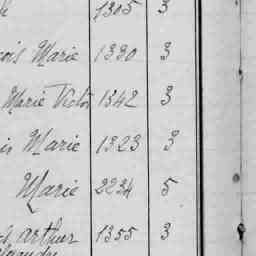 1305 3
ois Marie 1330 3
Marie Victor 1342 3
is Marie 1323 3
Marie 2234 5
arthur 1355 3